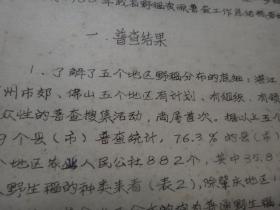 年我省野稻资源普查工作总结
一、普查结果
1、了解了五个地区野稻分布的底细：湛江
州市郊、佛山五个地区有计划、有组织、有领
众性的普查搜集活动，尚属首次。据以上五个
9个县（市）普查统计，76.3％的县（市）
个地区农业人民公社882个，其中35.8
野生稻的种类来看（表2），除肇庆地区